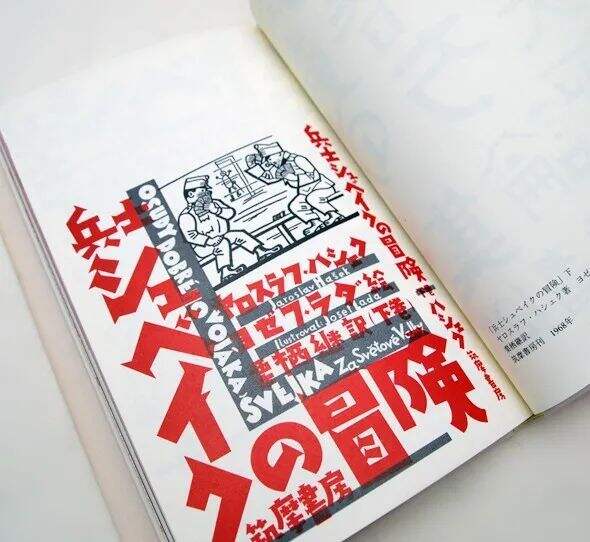 兵士シュベイクの冒険
OSUDY DOBRÉHO VOJÁKA
ŠVEJKA Za Světové Války
ヤロスラフ・ハシェク
Jaroslav Hašek
ヨゼフ・ラダ絵
Ilustroval Josef Lada
栗栖継訳(下巻)
筑摩書房
兵士シュベイクの冒険 下 ハシェク 筑摩書房
『兵士シュベイクの冒険』下
ヤロスラフ・ハシェク著 ヨゼ
栗栖継訳
筑摩書房刊 1968年